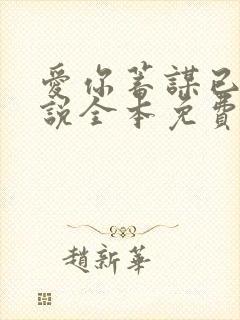 愛你蓄謀已
說全本免費
趙新華